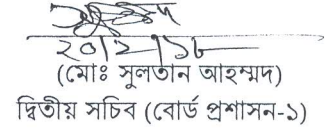 ২০/২/১৮
(মোঃ সুলতান আহম্মদ)
দ্বিতীয় সচিব (বোর্ড প্রশাসন-১)